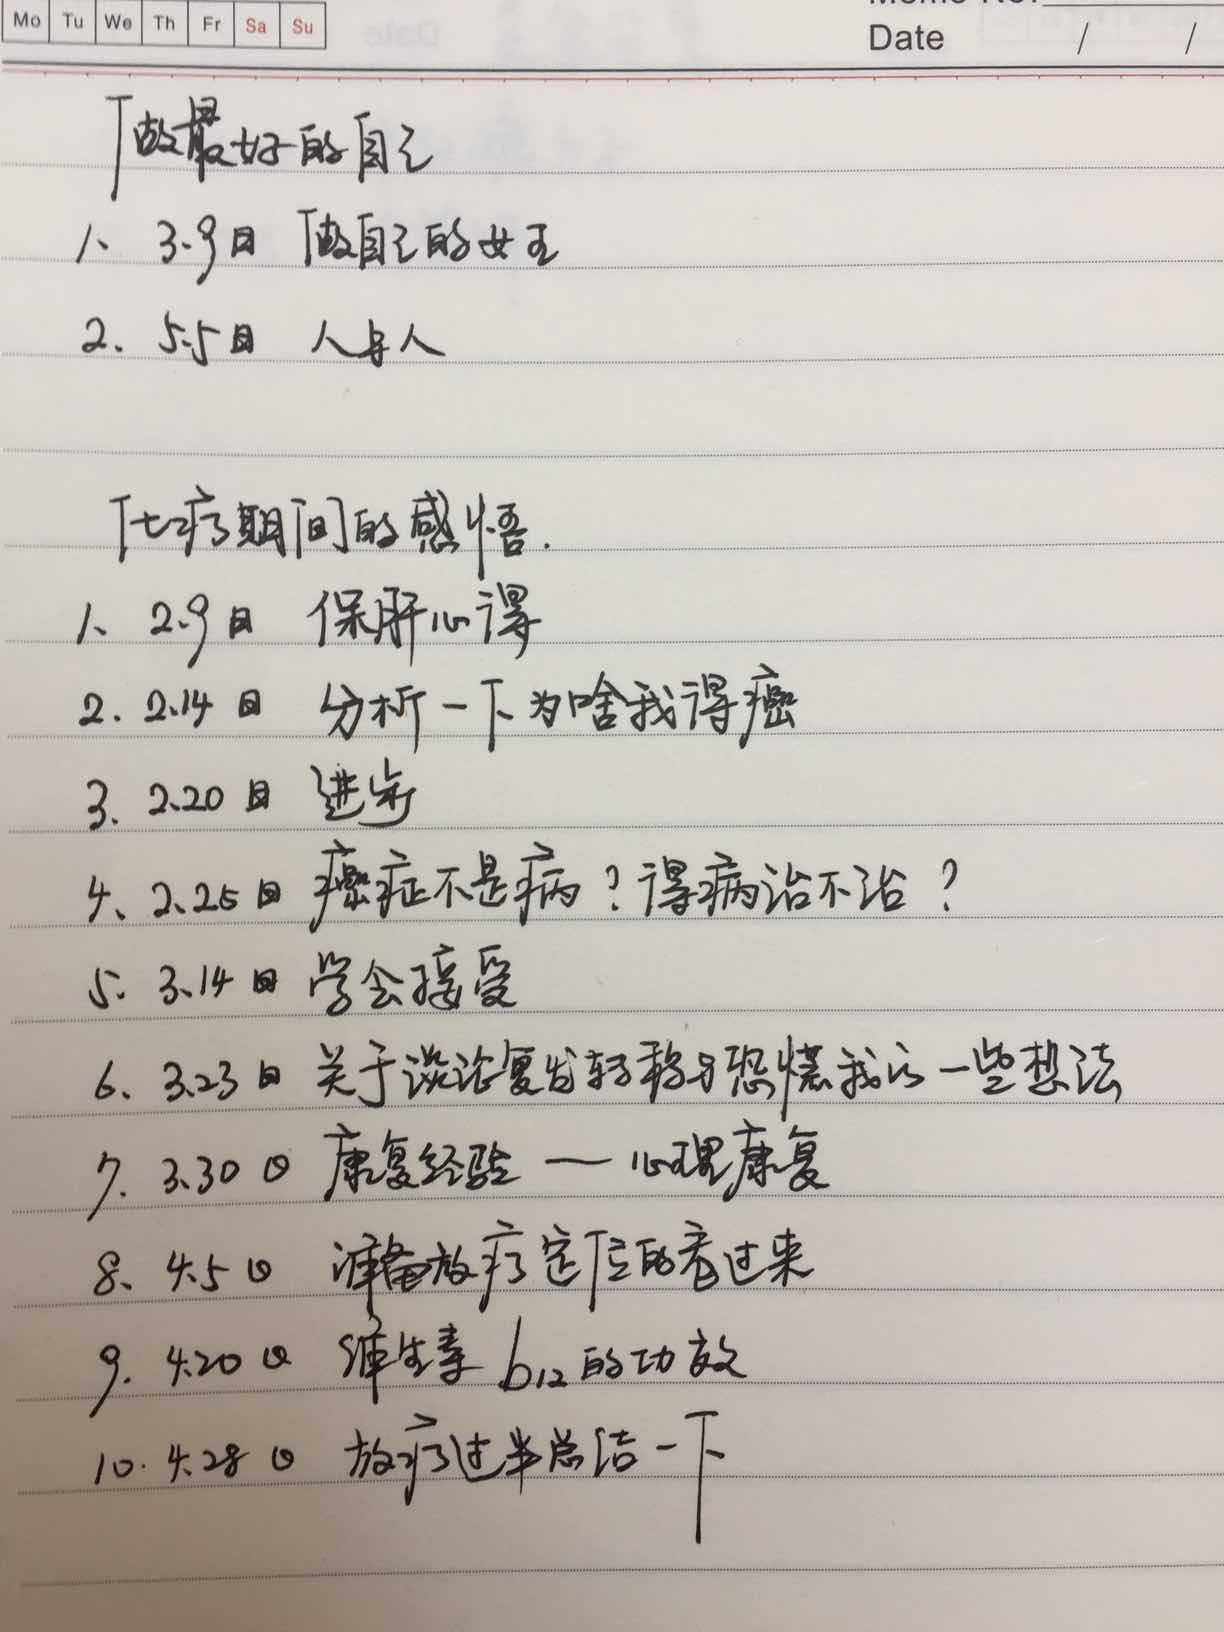 Mo Tu We Th Fr Sa Su
Memo No.
Date / /
做最好的自己
1、 3.9日 做自己的女王
2. 5.5日 人与人
化疗期间的感悟.
1、 2.9日 保肝心得
2. 2.14日 分析一下为啥我得癌
3. 2.20日 进步
4、 2.25日 癌症不是病？得病治不治？
5. 3.14日 学会接受
6. 3.23日 关于谈论复发转移与恐慌我的一些想法
7. 3.30日 康复经验 — 心理康复
8、 4.5日 准备放疗定位的看过来
9. 4.20日 维生素b12的功效
10. 4.28日 放疗过半总结一下